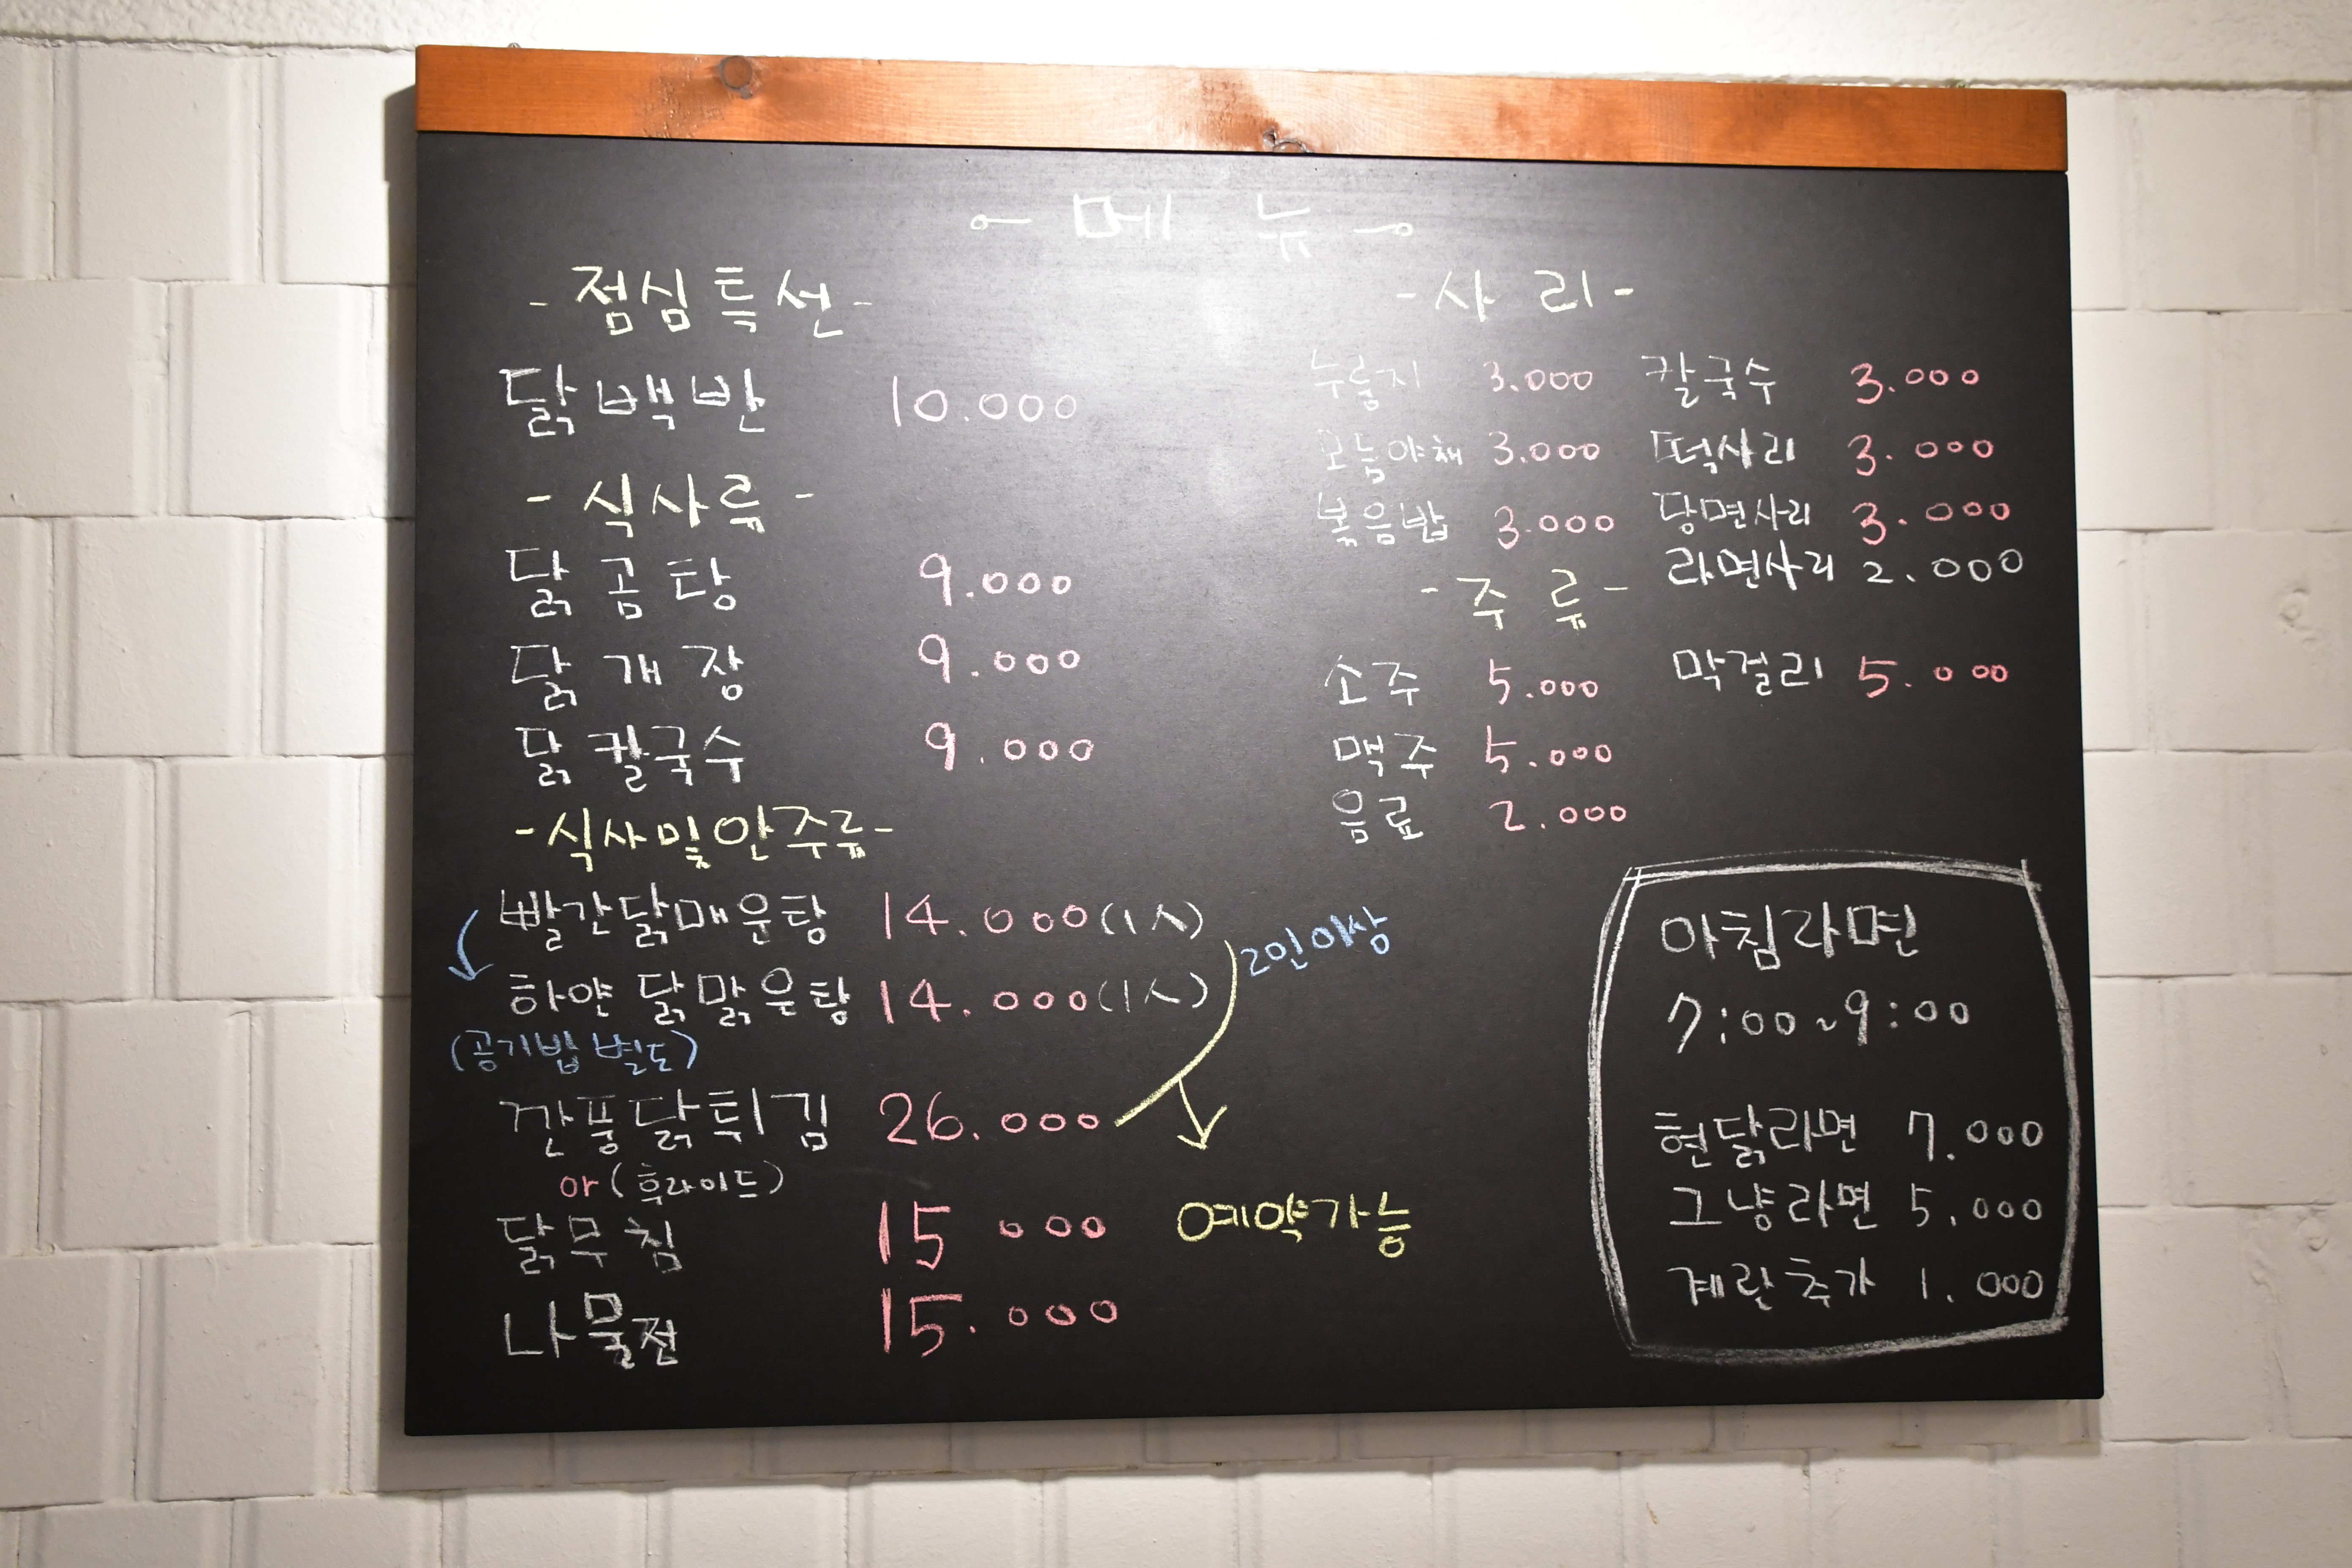 메 뉴
- 점심특선 -
닭백반 10.000
- 식사류 -
닭곰탕 9.000
닭개장 9.000
닭칼국수 9.000
- 식사및안주류 -
빨간닭매운탕 14.000(1人)
하얀닭맑은탕 14.000(1人)
2인이상
(공기밥 별도)
깐풍닭튀김 26.000
or (후라이드)
닭무침 15 000
나물전 15.000
예약가능
- 사 리 -
누룽지 3.000 칼국수 3.000
모듬야채 3.000 떡사리 3.000
볶음밥 3.000 당면사리 3.000
라면사리 2.000
- 주 류 -
소주 5.000 막걸리 5.000
맥주 5.000
음료 2.000
아침라면
7:00~9:00
현닭라면 7.000
그냥라면 5.000
계란추가 1.000